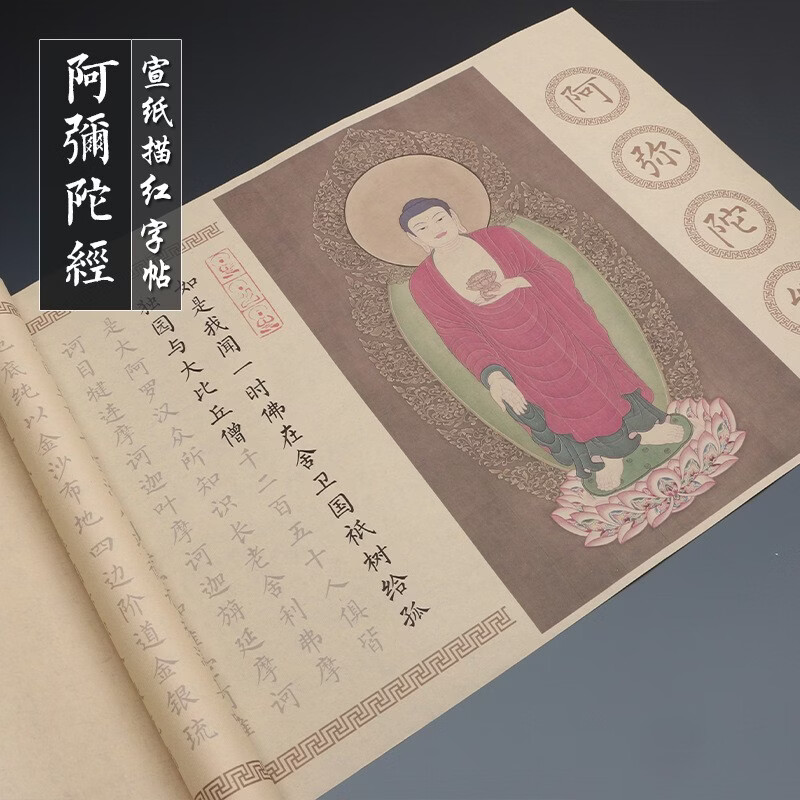 阿彌陀經
宣纸描红字帖
阿弥陀
如是我闻一时佛在舍卫国祇树给孤
独园与大比丘僧千二百五十人俱皆
是大阿罗汉众所知识长老舍利弗摩
诃目犍连摩诃迦叶摩诃迦旃延摩诃
底纯以金沙布地四边阶道金银琉